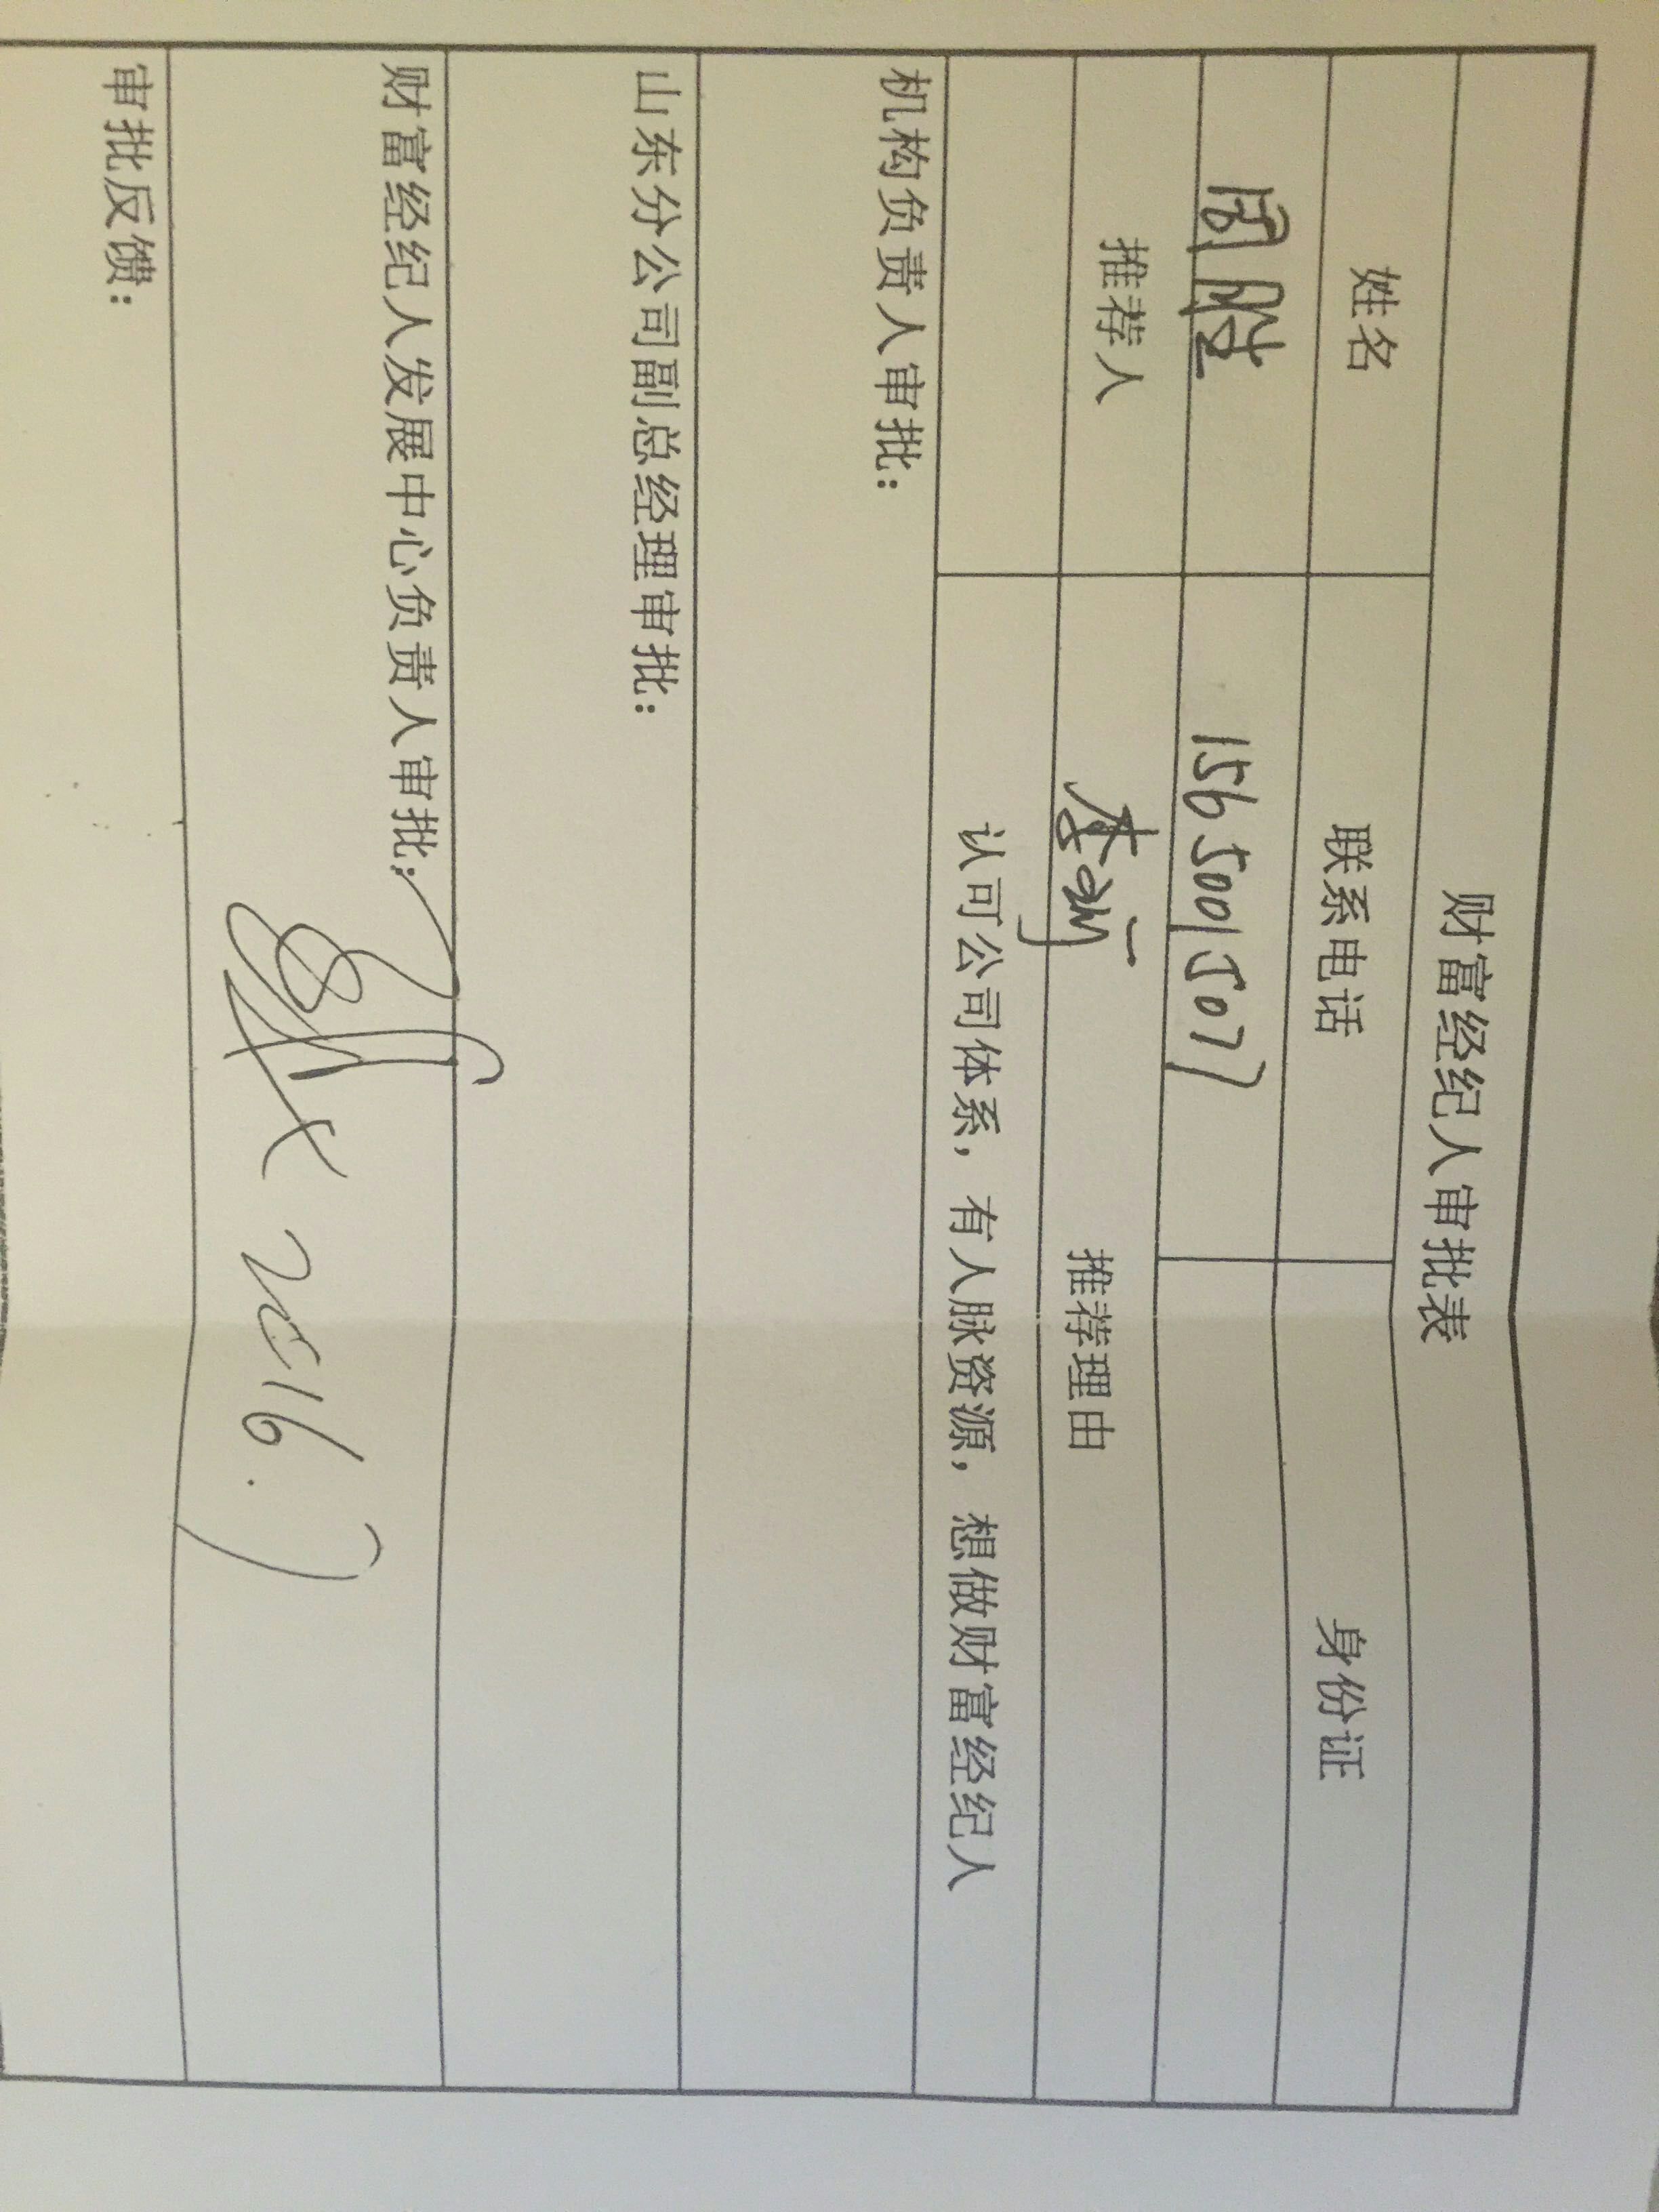 财富经纪人审批表
姓名 联系电话 身份证
周胜 15650015077
推荐人 推荐理由
李
认可公司体系，有人脉资源，想做财富经纪人
机构负责人审批：
山东分公司副总经理审批：
财富经纪人发展中心负责人审批：
2016.7
审批反馈：